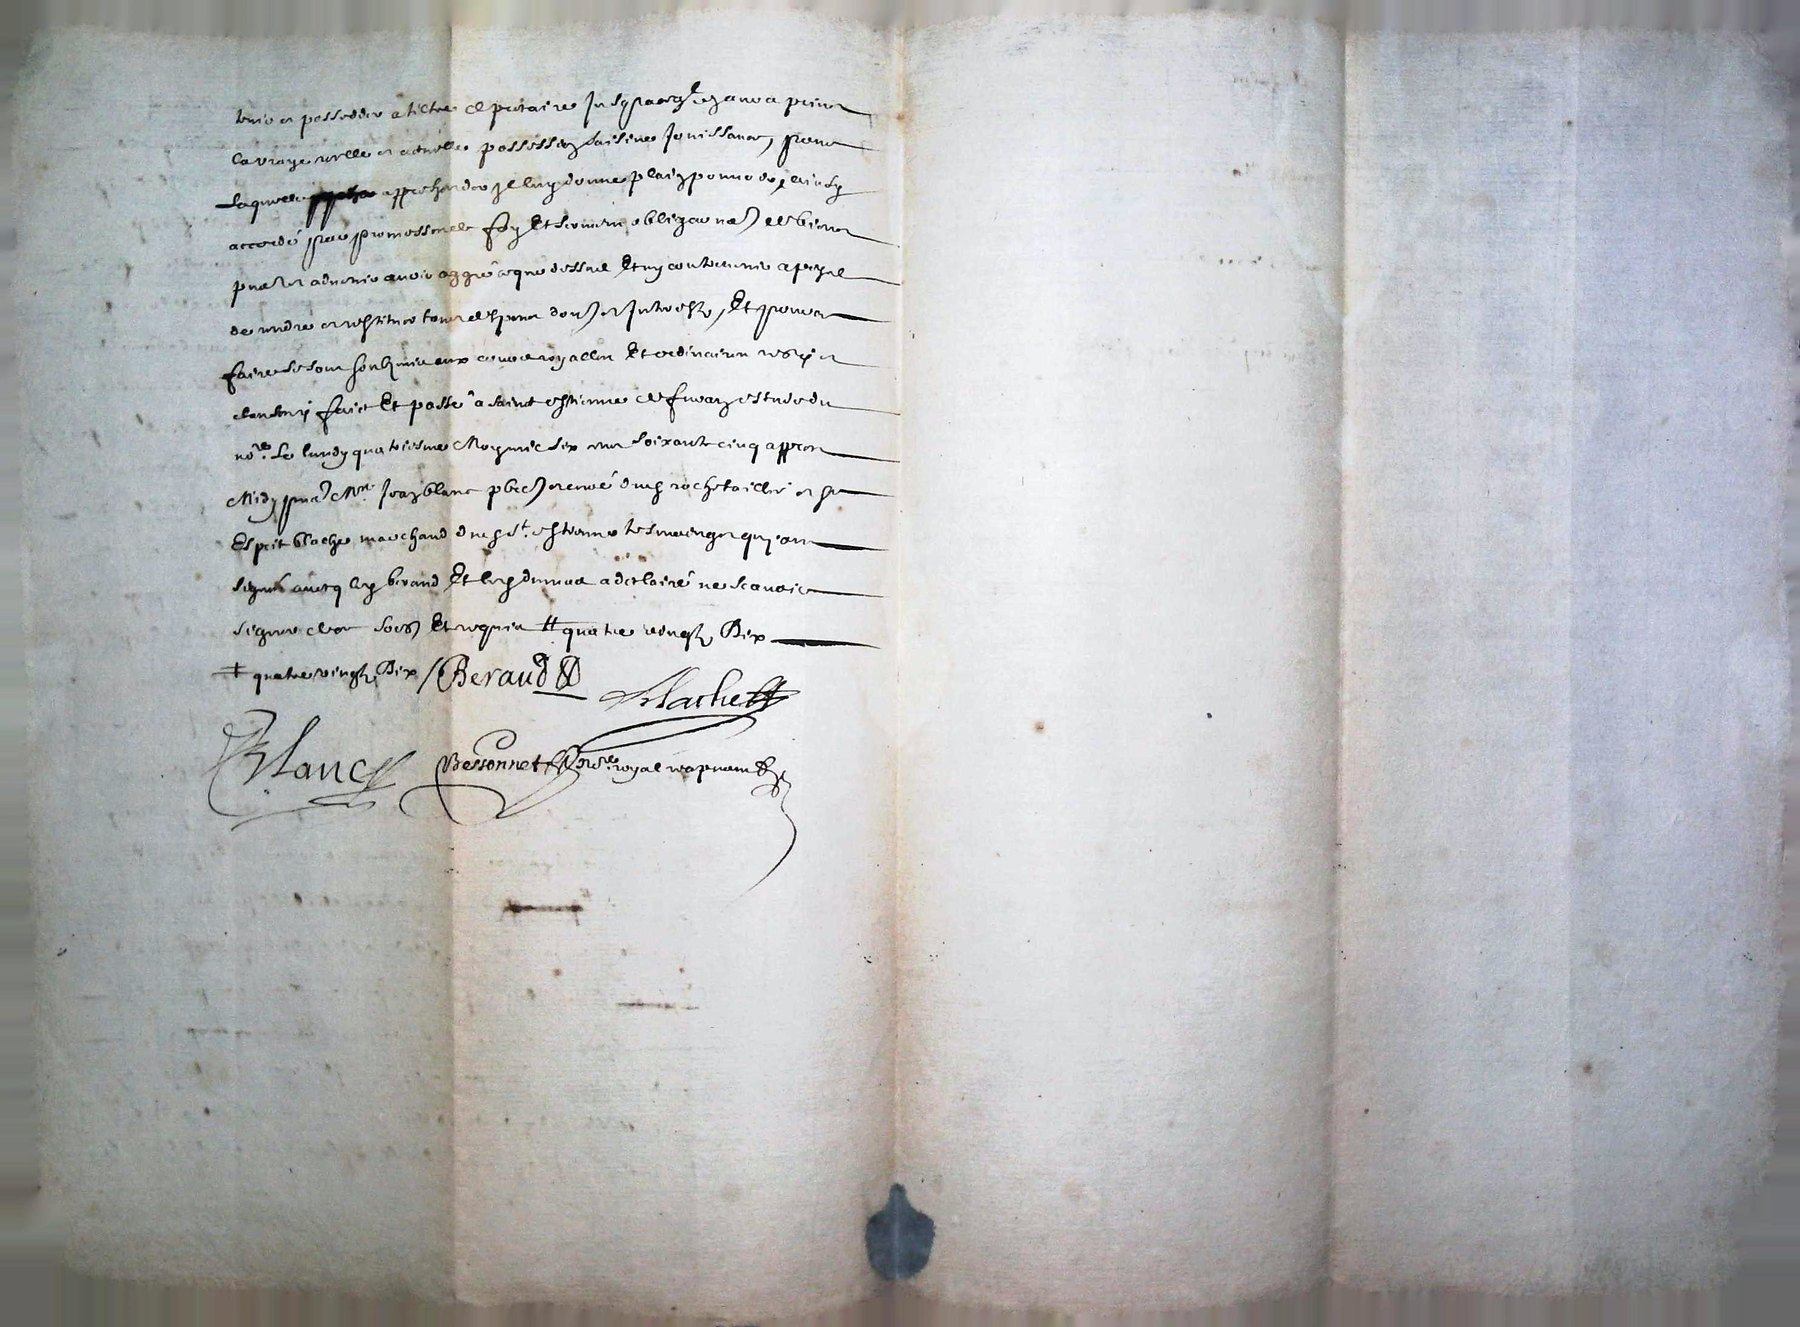 tenir et posseder a tiltre de precaire Jusques a ce quil en aura prins
la vraye reelle et actuelle possession saisine Jouissance, pour
laquelle apprehender Il luy donne plain pouvoir ainsy
accordé par promesse de foy Et serment obligaon de biens
pnts et advenir avoir aggré ce que dessus Et ny contrevenir a peyne
de rendre et restituer tous despens et Interestz, Et pour ce
faire se sont soubzmis aux cours royalles Et ordinaires
faict Et passé a Saint estienne de furan estude du
nore. Le lundy quatriesme May mil six cens soixante cinq appres
Midy pnts Mre Jean blanc pbre et curé dud rochetaillée et sr
Esprit blache marchand dud St. estienne tesmoings qui ont
signé avecq led beraud Et led a declairé ne scavoir
signer de ce Et requis ++ quatre vingtz Dix
+ quatre vingtz Dix / Beraud
Blache
Blanc
Bessonnet nore. royal